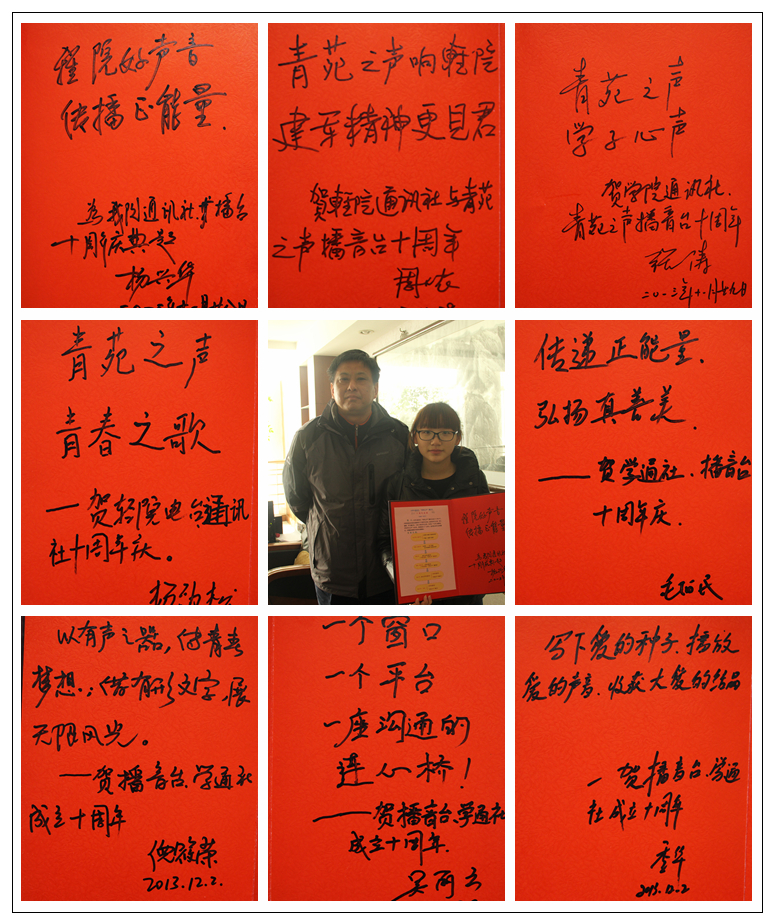 轻院好声音
传播正能量.
为我院通讯社、广播台
十周年庆典题
杨兴华
青苑之声响轻院
建军精神更见君
贺轻院通讯社与青苑
之声播音台十周年
青苑之声
学子心声
贺学院通讯社、
青苑之声播音台十周年
张涛
青苑之声
青春之歌
一贺轻院电台通讯
社十周年庆。
传递正能量.
弘扬真善美.
——贺学通社、播音台
十周年庆.
以有声之器,传青春
梦想;借有形文字,展
无限风光。
——贺播音台、学通社
成立十周年
2013.12.2.
一个窗口
一个平台
一座沟通的
连心桥!
——贺播音台、学通社
成立十周年.
写下爱的种子.播放
爱的声音.收获大爱的结晶
一贺播音台、学通
社成立十周年
季华
2013.12.2